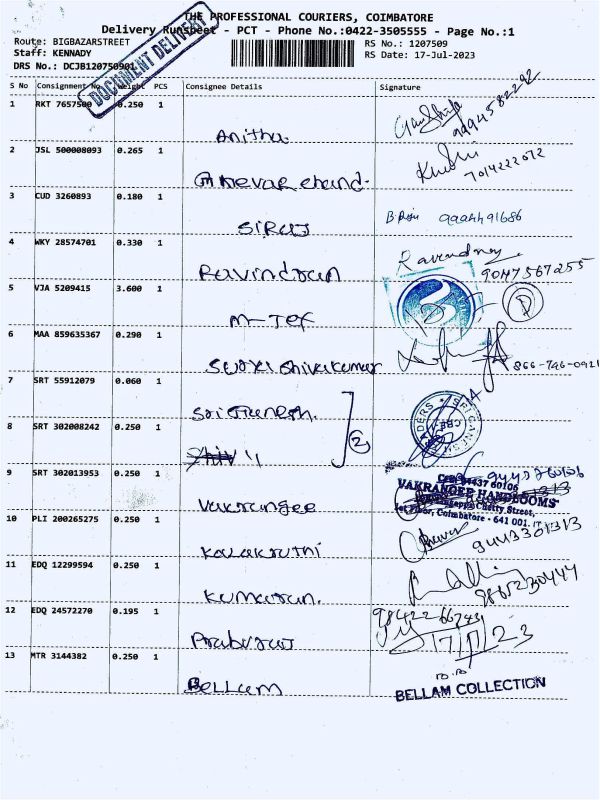 THE PROFESSIONAL COURIERS, COIMBATORE
Delivery Runsheet - PCT - Phone No.:0422-3505555 - Page No.:1
Route: BIGBAZARSTREET
RS No.: 1207509
Staff: KENNADY
RS Date: 17-Jul-2023
DRS No.: DCJB120750901
DOCUMENT DELIVERY
S No Consignment No Weight PCS Consignee Details Signature
1 RKT 7657500 0.250 1 Anitha 9994582292
2 JSL 500008093 0.265 1 chand. 7014222072
3 CUD 3260893 0.180 1 SIRAJ 9994491686
4 WKY 28574701 0.330 1 Ravindran Ravendray 9047567255
5 VJA 5209415 3.600 1 M-Tef
6 MAA 859635367 0.290 1 Shivakumar 866-746-0921
7 SRT 55912079 0.060 1 Sri Ganesh. 2
8 SRT 302008242 0.250 1
SRI GANESH
9 SRT 302013953 0.250 1 Vakrangee
VAKRANGEE HANDLOOMS
Chetty Street,
1st Floor, Coimbatore - 641 001.
10 PLI 200265275 0.250 1 Kalakruthi 9443301313
11 EDQ 12299594 0.250 1 Kumaran. 9865230444
12 EDQ 24572270 0.195 1 Prabhuraj 9842266743
17/7/23
13 MTR 3144382 0.250 1 Bellam
BELLAM COLLECTION